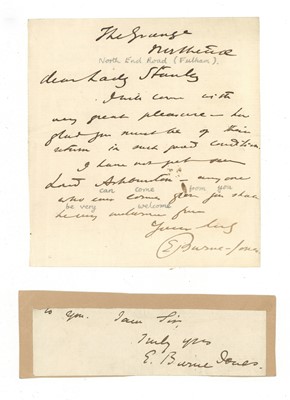 The Grange
Northend
North End Road (Fulham).
dear Lady Stanley
I will come with
very great pleasure – how
glad you must be of their
return in such good condition
I have not yet seen
Lord Ashburton – any one
can come from you
who ever comes from you shall
be very welcome
be very welcome here
Yours truly
E Burne-Jones
to you. I am Sir,
Truly yrs
E. Burne Jones.